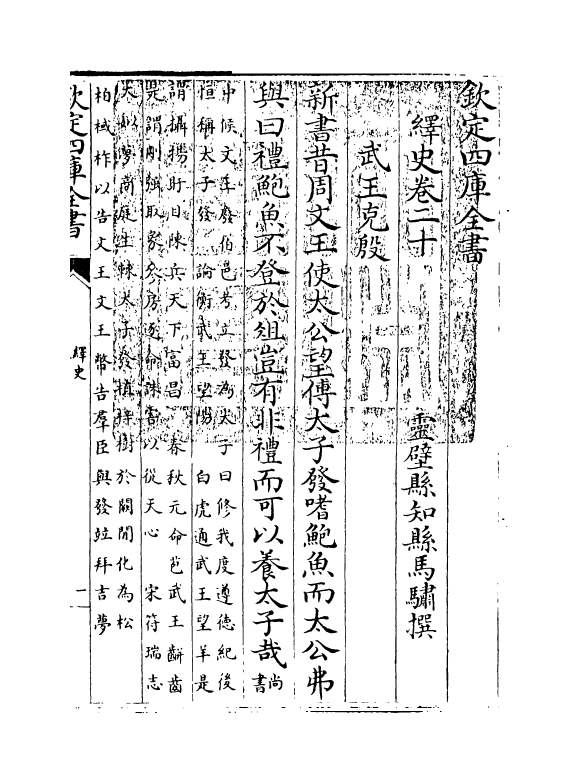 欽定四庫全書
繹史卷二十
靈壁縣知縣馬驌撰
武王克殷
新書昔周文王使太公望傅太子發嗜鮑魚而太公弗
與曰禮鮑魚不登於俎豈有非禮而可以養太子哉尚書
中候文王廢伯邑考立發為太子曰修我度遵德紀後
恒稱太子發 論衡武王望陽 白虎通武王望羊是
謂攝揚盱目陳兵天下富昌 春秋元命苞武王齞齒
是謂剛強取象參房逐命誅害以從天心 宋符瑞志
大姒夢商庭生棘太子發植梓樹於闕閒化為松
柏棫柞以告文王文王幣告羣臣與發竝拜吉夢
欽定四庫全書
繹史
一